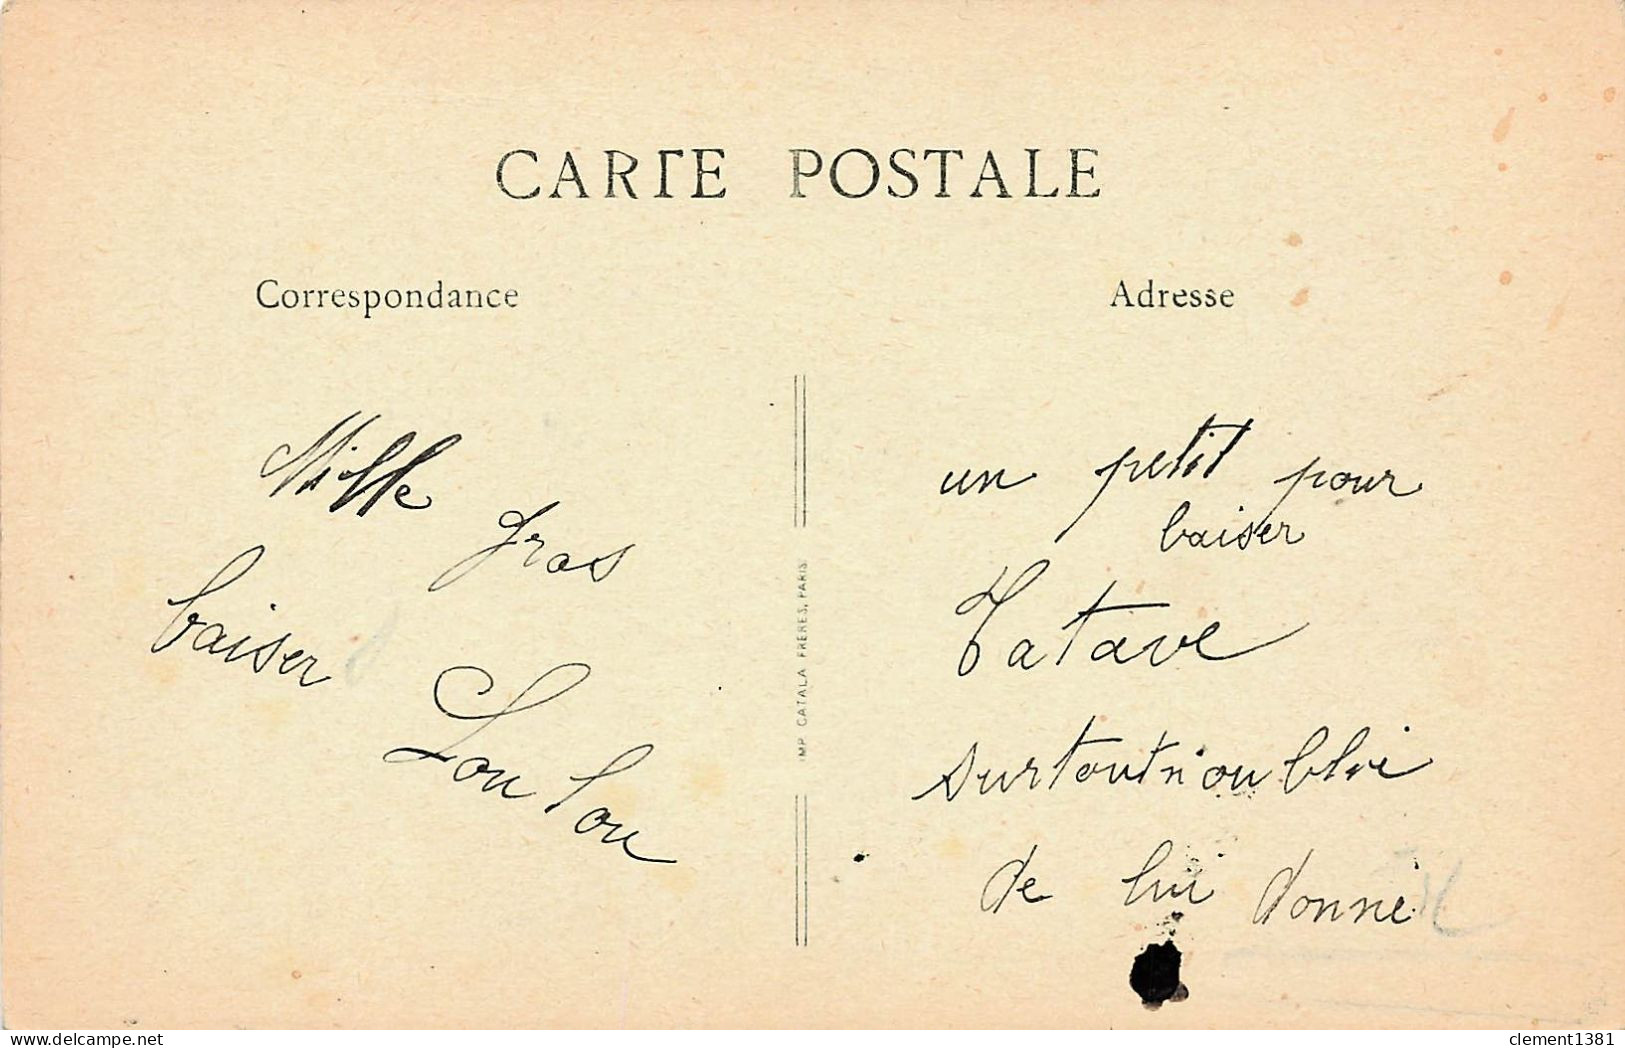 CARTE POSTALE
Correspondance
Mille gros
baiser
Lou lou
IMP. CATALA FRÈRES, PARIS
Adresse
un petit pour
baiser
Tatave
surtout n'oublie
de lui donné
delcampe.net
clement1381